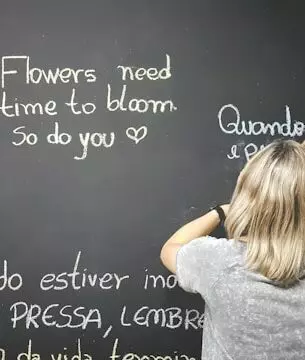 Flowers need
time to bloom.
So do you ♡
Quando
e
do estiver
PRESSA, LEMBRE
da vida